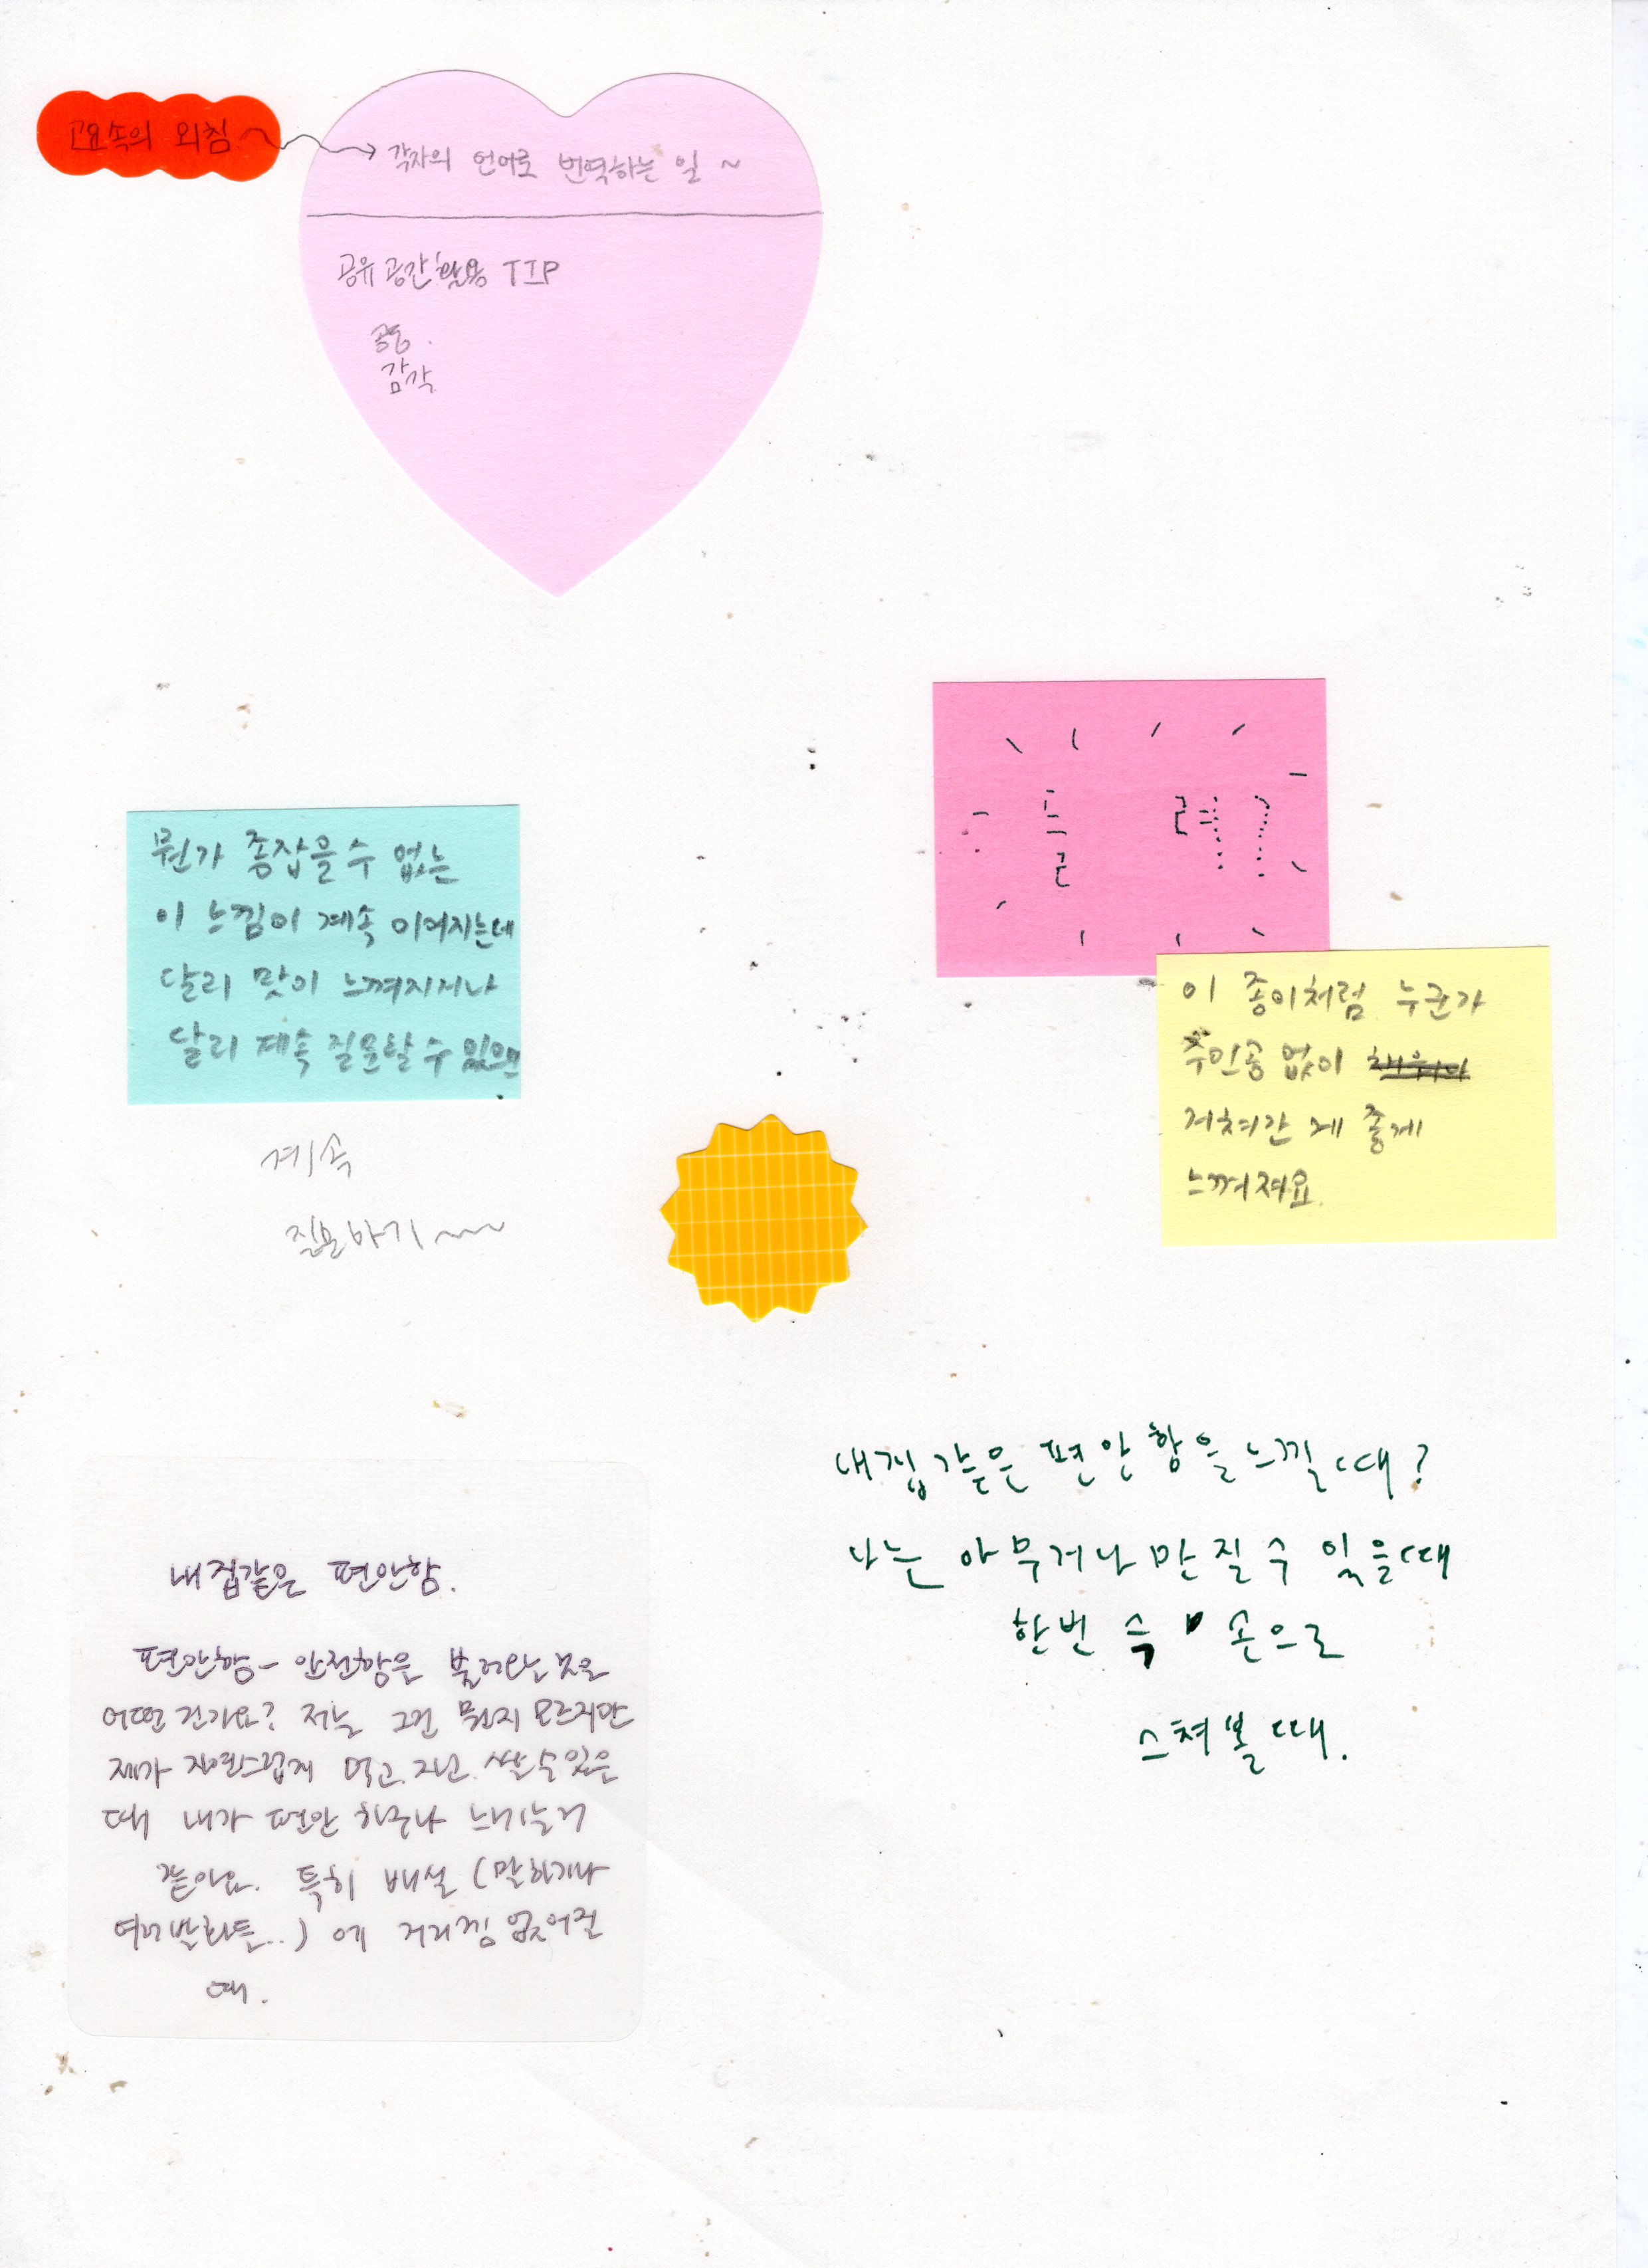 고요속의 외침
각자의 언어로 번역하는 일 ~
공유공간활용 TIP
공동
감각
뭔가 종잡을 수 없는
이 느낌이 계속 이어지는데
달리 맛이 느껴지거나
달리 계속 질문할 수 있으면
계속
질문하기~~~
이 종이처럼 누군가
주인공 없이
저쳐간 게 좋게
느껴져요.
내집같은 편안함을 느낄때?
나는 아무거나 만질 수 있을때
한번 슥 손으로
스쳐볼 때.
내 집같은 편안함.
편안함 - 안전함을 불러오는 것은
어떤 건가요? 저는 그건 뭔지 모르지만
제가 자연스럽게 먹고. 자고. 쌀 수 있을
때 내가 편안하구나 느끼는거
같아요. 특히 배설 (말하거나
) 에 거리낌 없어질
때.